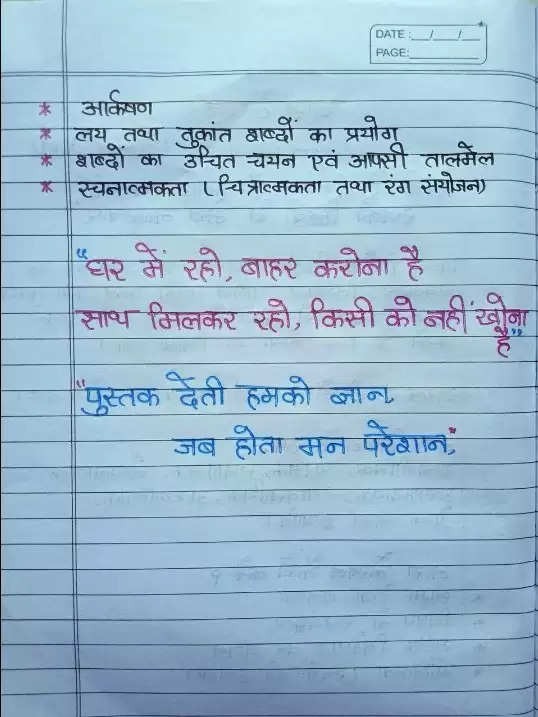 DATE :__/__/__
PAGE:
* आर्कषण
* लय तथा तुकांत शब्दों का प्रयोग
* शब्दों का उचित चयन एवं आपसी तालमेल
* रचनात्मकता (चित्रात्मकता तथा रंग संयोजन)
"घर में रहो, बाहर करोना है
साथ मिलकर रहो, किसी को नहीं खोना
है"
"पुस्तक देती हमको ज्ञान,
जब होता मन परेशान,"